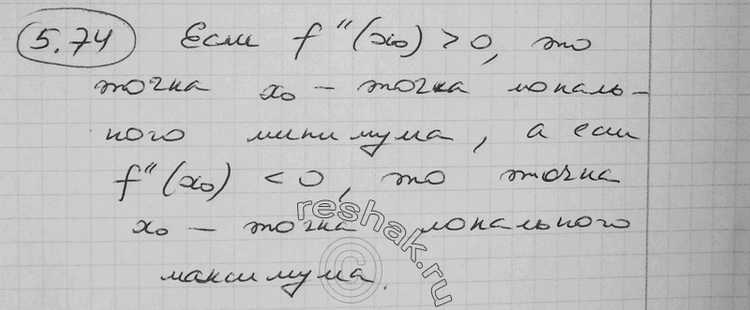 5.74 Если f''(x₀) > 0, то
точка x₀ - точка локаль-
ного минимума, а если
f''(x₀) < 0, то точка
x₀ - точка локального
максимума.
reshak.ru
©